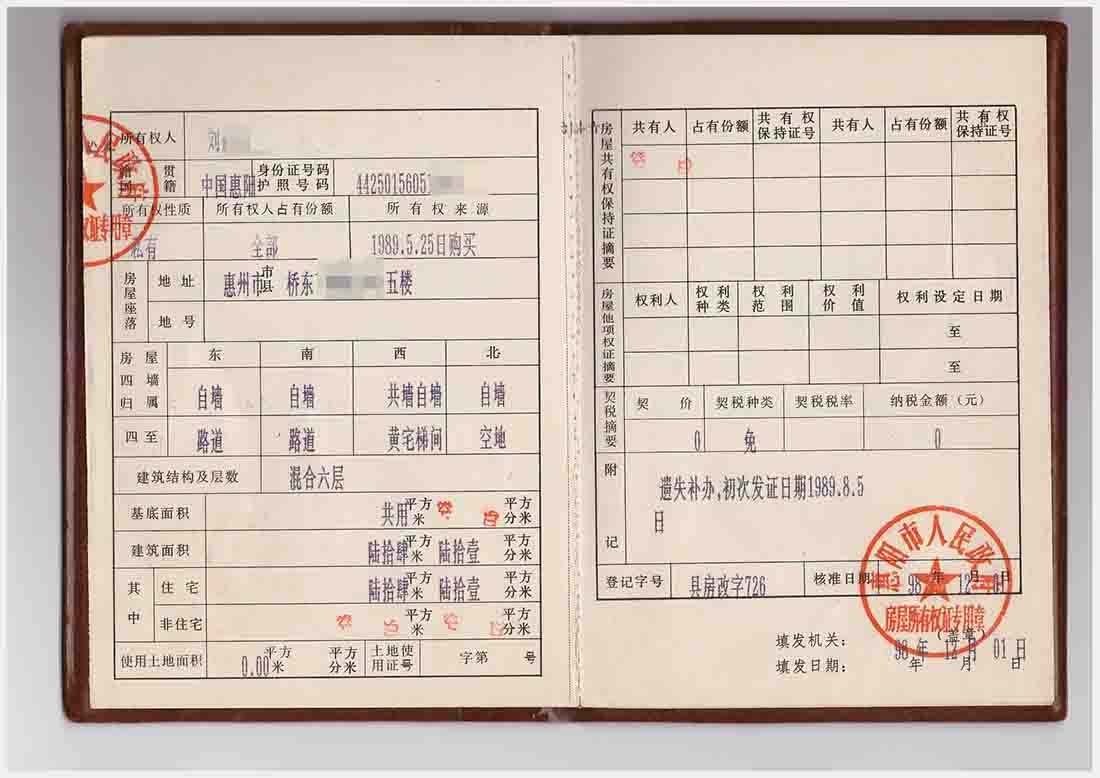 所有权人 刘
籍贯 国籍 中国惠阳 身份证号码 护照号码 44250156051
所有权性质 所有权人占有份额 所有权来源
私有 全部 1989.5.25日购买
房屋座落 地址 惠州市 市县 桥东 五楼
地号
房屋四墙归属 东 南 西 北
自墙 自墙 共墙自墙 自墙
四至 路道 路道 黄宅梯间 空地
建筑结构及层数 混合六层
基底面积 共用 平方米 空 白 平方分米
建筑面积 陆拾肆 平方米 陆拾壹 平方分米
其中 住宅 陆拾肆 平方米 陆拾壹 平方分米
非住宅 空 白 平方米 空 白 平方分米
使用土地面积 0.00 平方米 平方分米 土地使用证号 字第 号
房屋共有权保持证摘要 共有人 占有份额 共有权保持证号 共有人 占有份额 共有权保持证号
空 白
房屋他项权证摘要 权利人 权利种类 权利范围 权利价值 权利设定日期
至
至
契税摘要 契价 契税种类 契税税率 纳税金额(元)
0 免 0
附记 遗失补办,初次发证日期1989.8.5
日
登记字号 县房改字726 核准日期 98年12月01日
惠阳市人民政府
房屋所有权证专用章
填发机关: (盖章)
填发日期: 98年12月01日